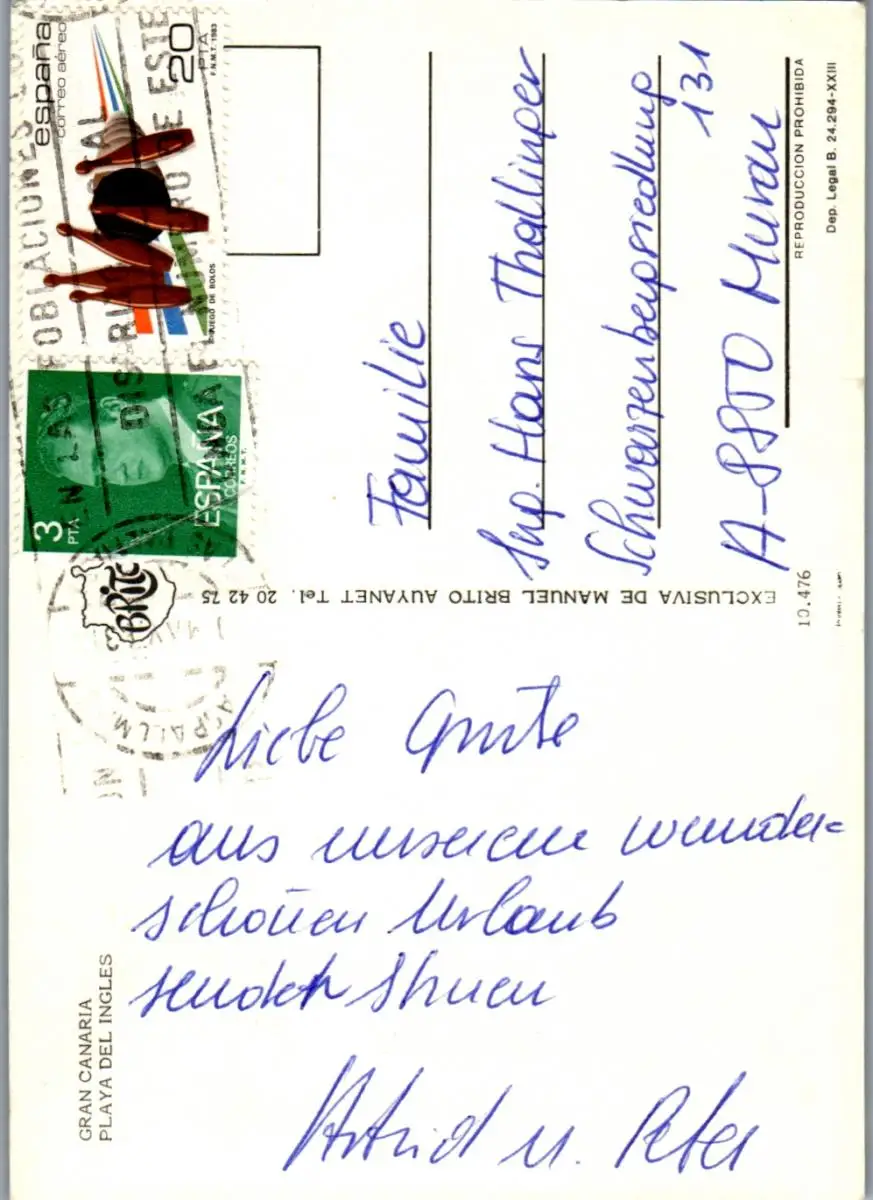 GRAN CANARIA
PLAYA DEL INGLES
Liebe Grüße
aus unserem wunder=
schönen Urlaub
sendet Ihnen
Astrid u. Peter
BRITO
EXCLUSIVA DE MANUEL BRITO AUYANET Tel. 20 42 75
3
PTA
ESPAÑA
CORREOS
F.N.M.T.
españa
correo aéreo
20
PTA
F.N.M.T. 1983
JUEGO DE BOLOS
EN LAS POBLACIONES
DISTRITO POSTAL
NUMERO DE ESTE
Familie
Ing. Hans Thallinger
Schwarzenbergsiedlung
131
A-8800 Murau
REPRODUCCION PROHIBIDA
Dep. Legal B. 24.294-XXIII
10.476